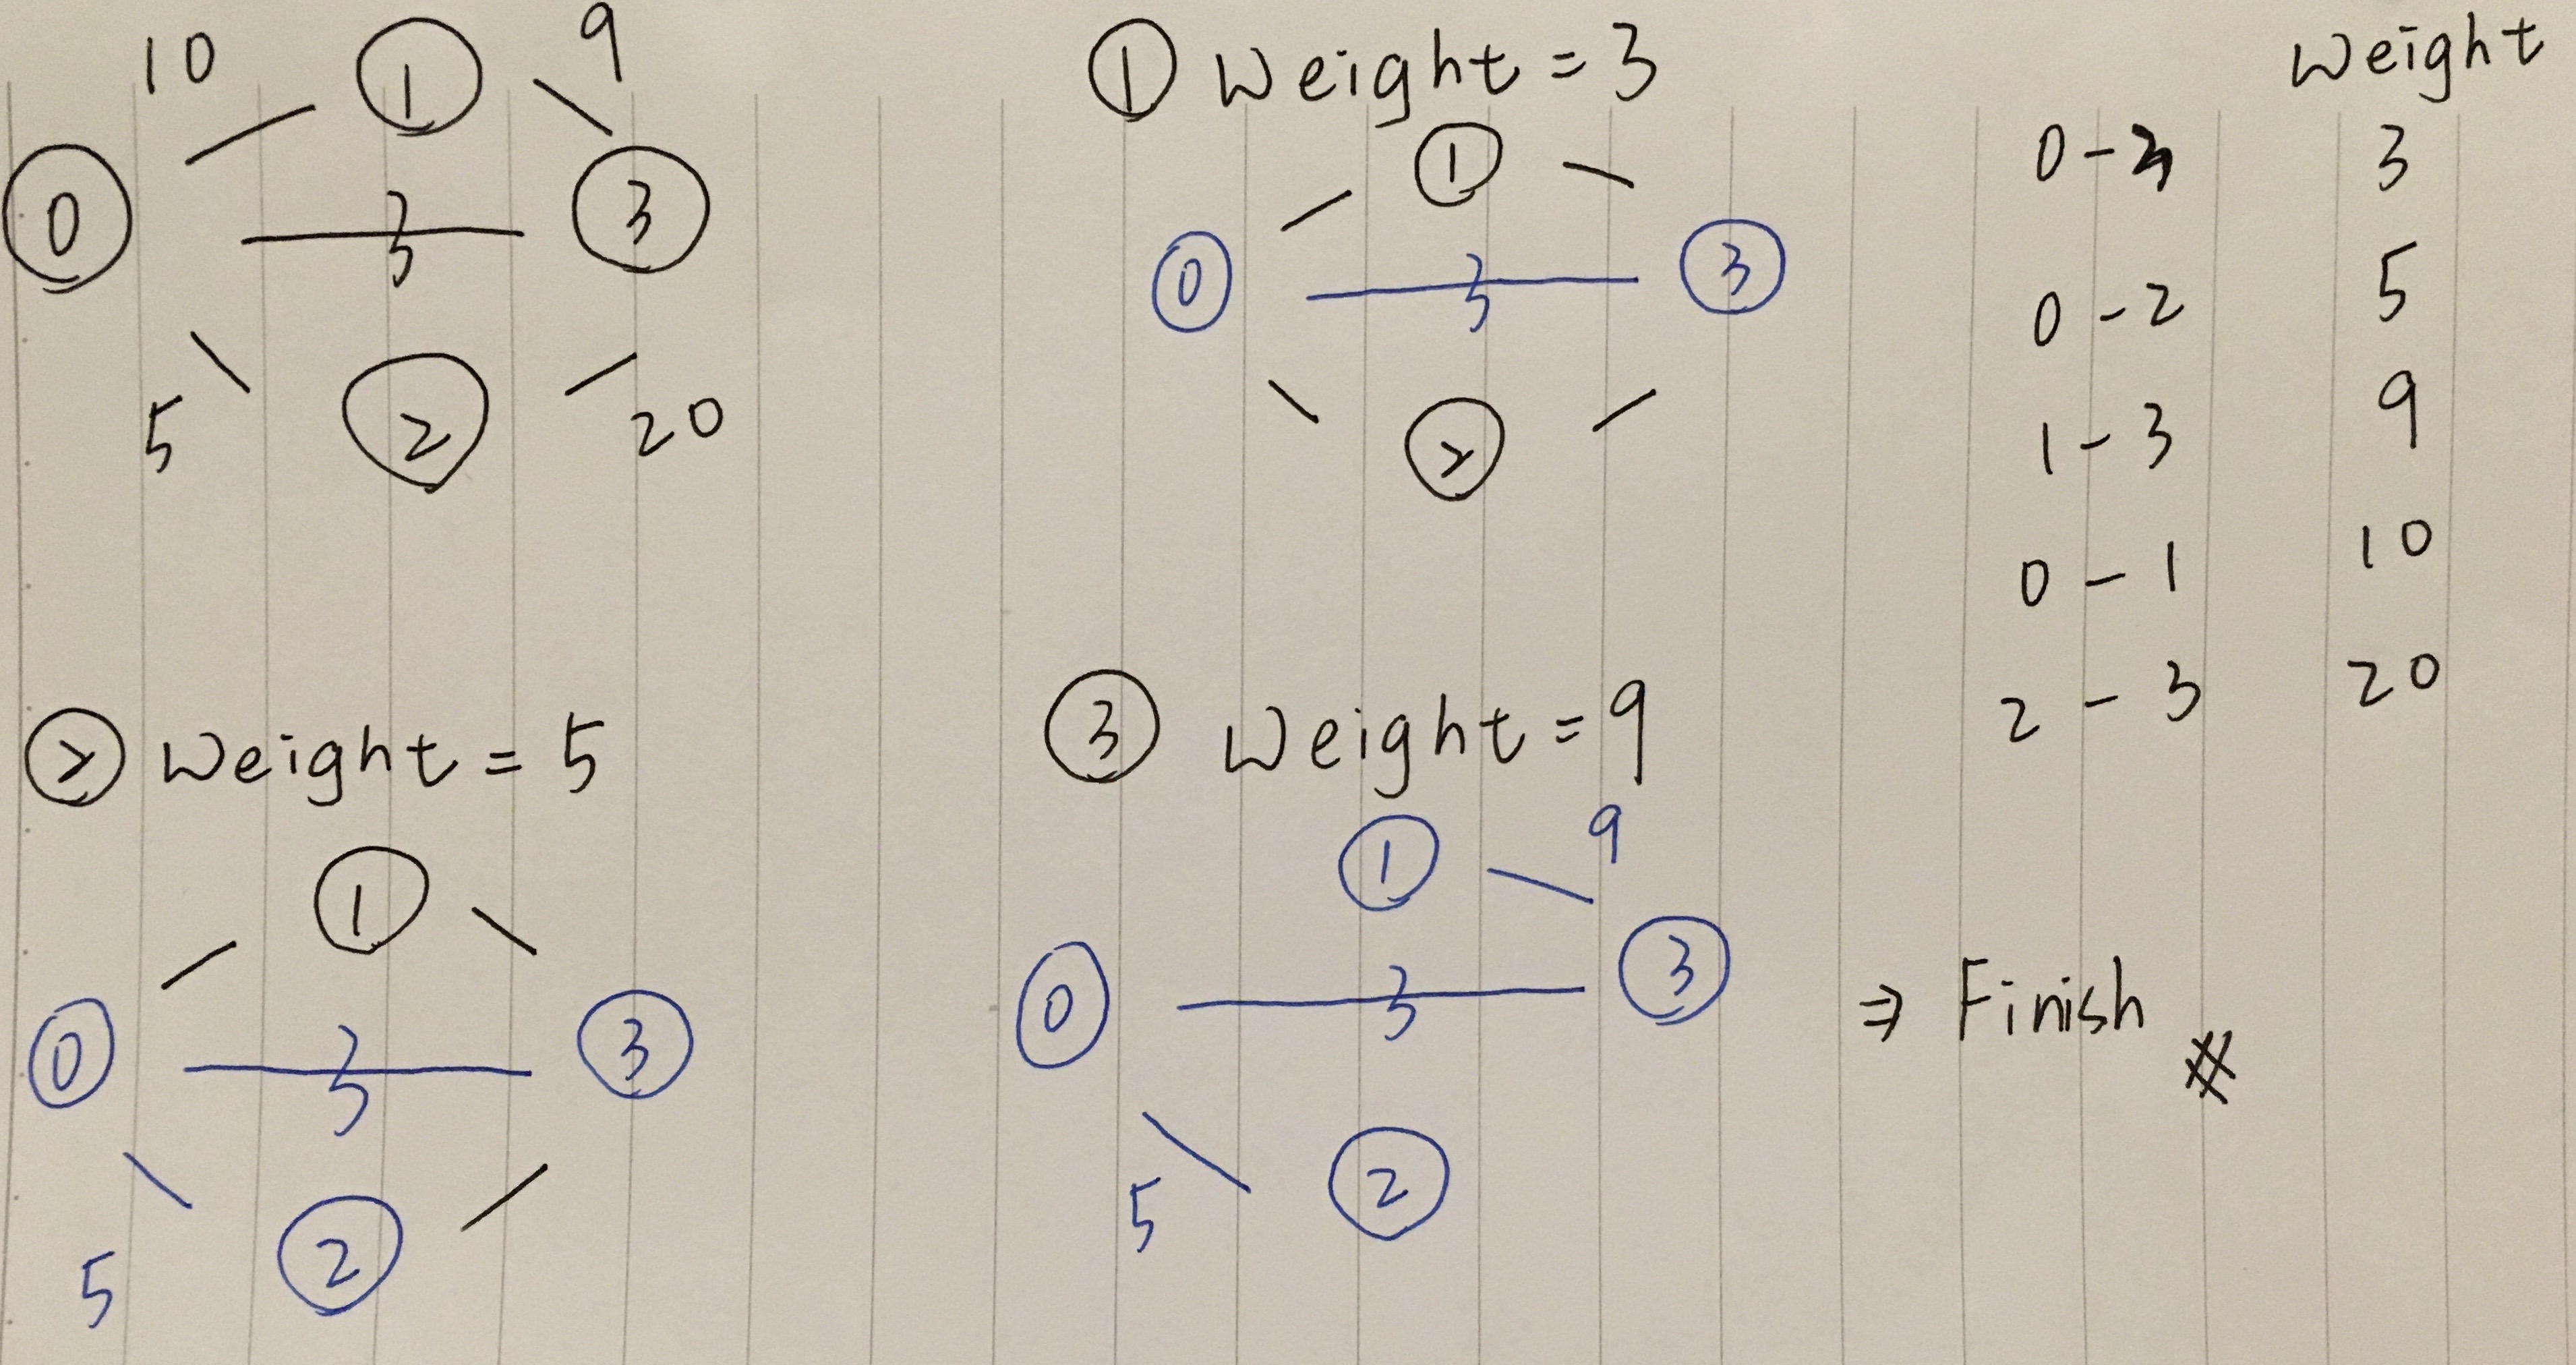 10 1 9
0 3 3
5 2 20
① Weight = 3
1
0 3 3
2
Weight
0 - 3 3
0 - 2 5
1 - 3 9
0 - 1 10
2 - 3 20
② Weight = 5
1
0 3 3
5 2
③ Weight = 9
1 9
0 3 3
5 2
⇒ Finish #